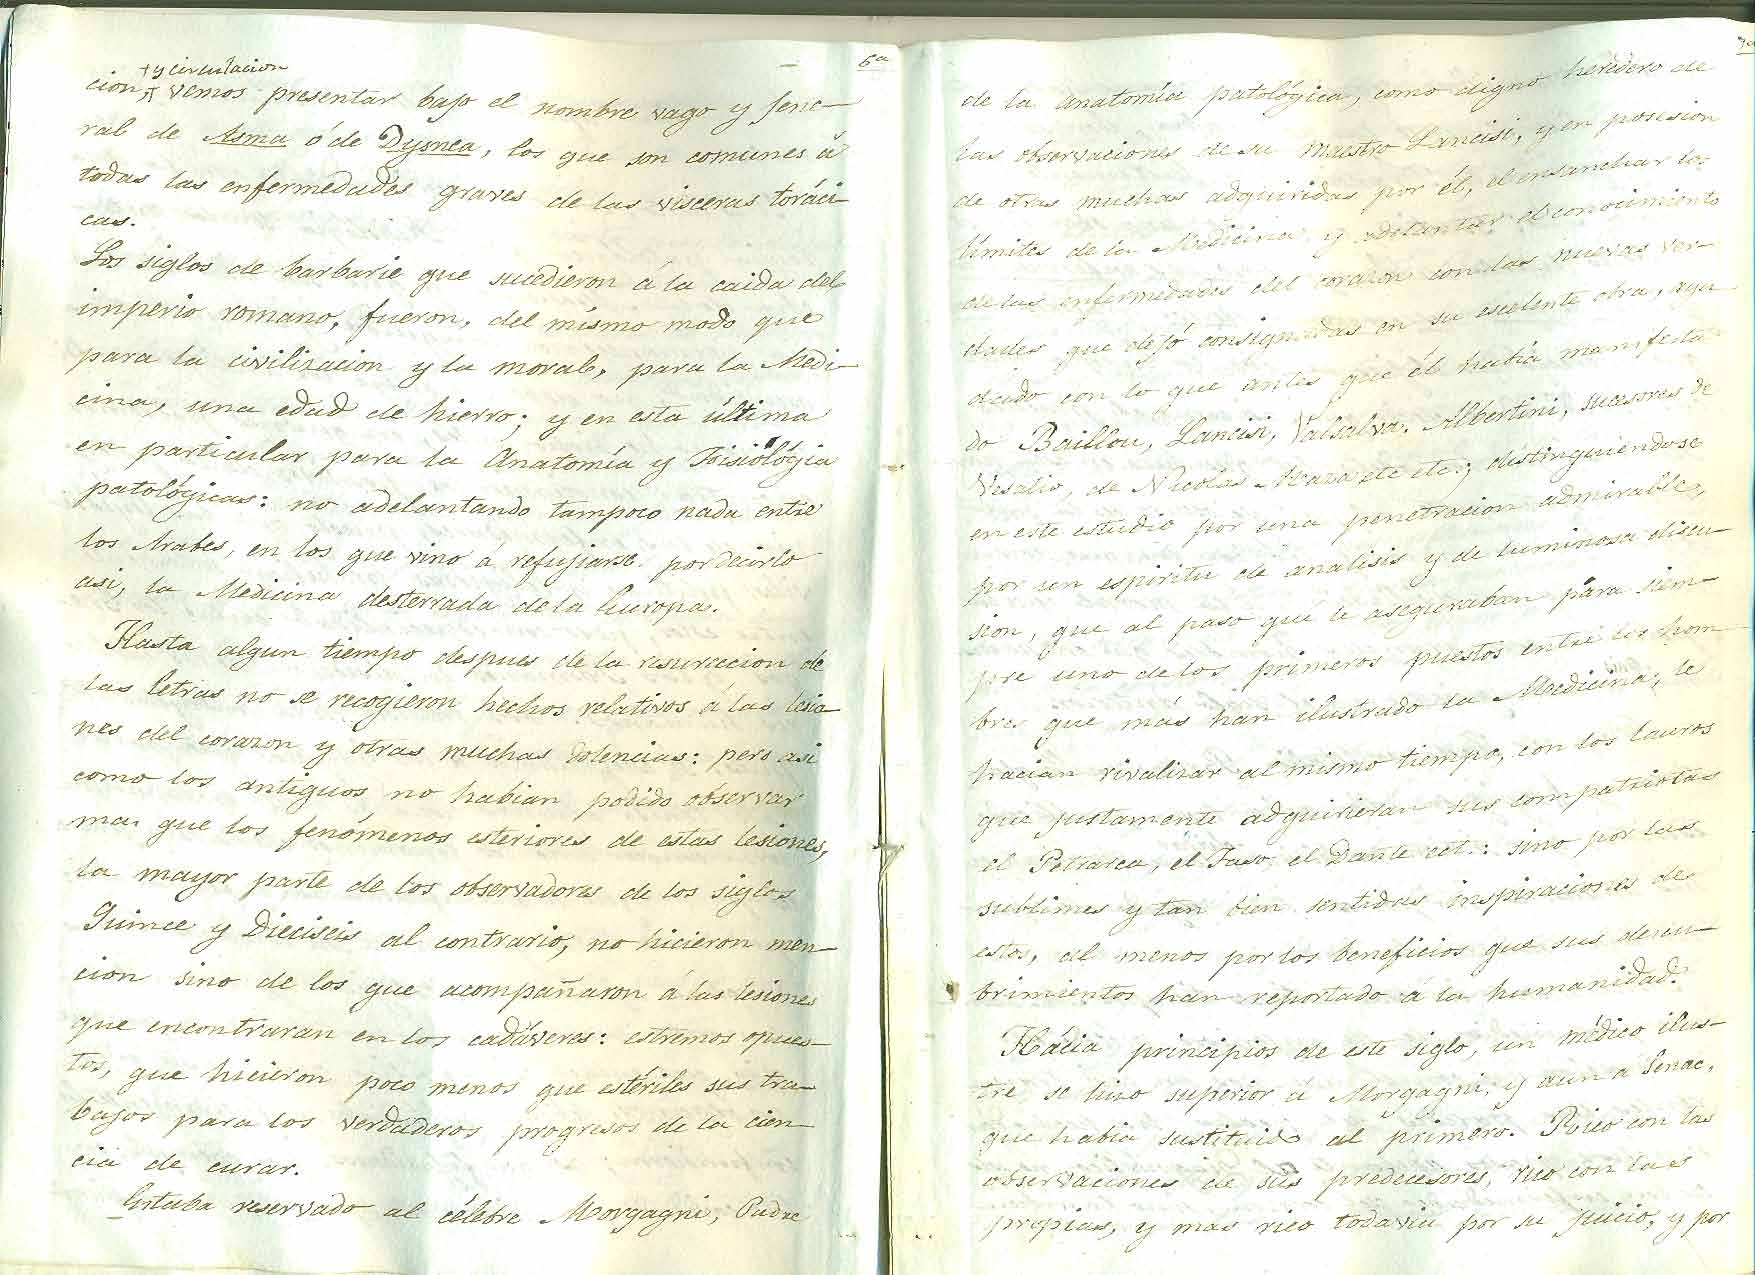 + y circulacion
6a
cion,+ vemos presentar bajo el nombre vago y jene-
ral de Asma ó de Dysnea, los que son comunes á
todas las enfermedades graves de las visceras toráci-
cas.
Los siglos de barbarie que sucedieron á la caida del
imperio romano, fueron, del mismo modo que
para la civilizacion y la moral, para la Medi-
cina, una edad de hierro; y en esta última
en particular para la Anatomía y Fisiológia
patológicas: no adelantando tampoco nada entre
los Arabes, en los que vino á refujiarse por decirlo
asi, la Medicina desterrada de la Europa.
Hasta algun tiempo despues de la resureccion de
las letras no se recogieron hechos relativos á las lesio-
nes del corazon y otras muchas dolencias: pero asi
como los antiguos no habian podido observar
mas que los fenómenos esteriores de estas lesiones,
la mayor parte de los observadores de los siglos
Quince y Dieciseis al contrario, no hicieron men-
cion sino de los que acompañaron á las lesiones
que encontraran en los cadáveres: estremos opues-
tos, que hicieron poco menos que estériles sus tra-
bajos para los verdaderos progresos de la cien-
cia de curar.
Estaba reservado al célebre Morgagni, Padre
7a
de la anatomía patológica, como digno heredero de
las observaciones de su maestro Lancisi, y en posesion
de otras muchas adquiridas por él, el ensanchar los
límites de la Medicina y adelantar el conocimiento
de las enfermedades del corazon con las nuevas ver-
dades que dejó consignadas en su escelente obra, ayu
dado con lo que antes que él habia manifesta
do Baillou, Lancisi, Valsalva, Albertini, sucesores de
Vesalio, de Nicolás Maza etc etc.; distinguiendose
en este estudio por una penetracion admirable,
por un espiritu de análisis y de luminosa discu-
sion, que al paso que le aseguraban pára siem-
pre uno de los primeros puestos entre los hom
bres que más han ilustrado la Medicina; le
hacian rivalizar al mismo tiempo, con los lauros
que justamente adquirieran sus compatriotas
el Petrarca, el Taso, el Dante ect.: sino por las
sublimes y tan bien sentidas inspiraciones de
estos, al menos por los beneficios que sus descu-
brimientos han reportado á la humanidad.
Hácia principios de este siglo, un médico ilus-
tre se hizo superior á Morgagni, y aun a Senac,
que habia sustituido al primero. Rico con las
observaciones de sus predecesores, rico con las
propias, y mas rico todavia por su juicio, y por